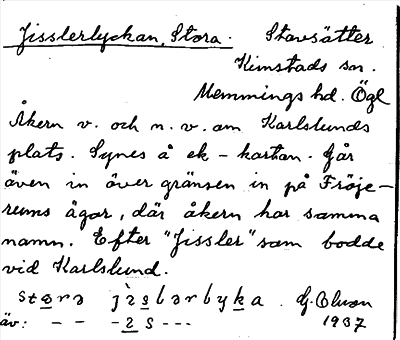 Jisslerlyckan, Stora. Stavsätter
Kimstads sn.
Memmings hd. Ögl
Åkern v. och n. v. om Karlslunds
plats. Synes å ek-kartan. Går
även in över gränsen in på Fröje-
rums ägor, där åkern har samma
namn. Efter "Jissler" som bodde
vid Karlslund.
G. Olson
äv: - - - s - - - 1937